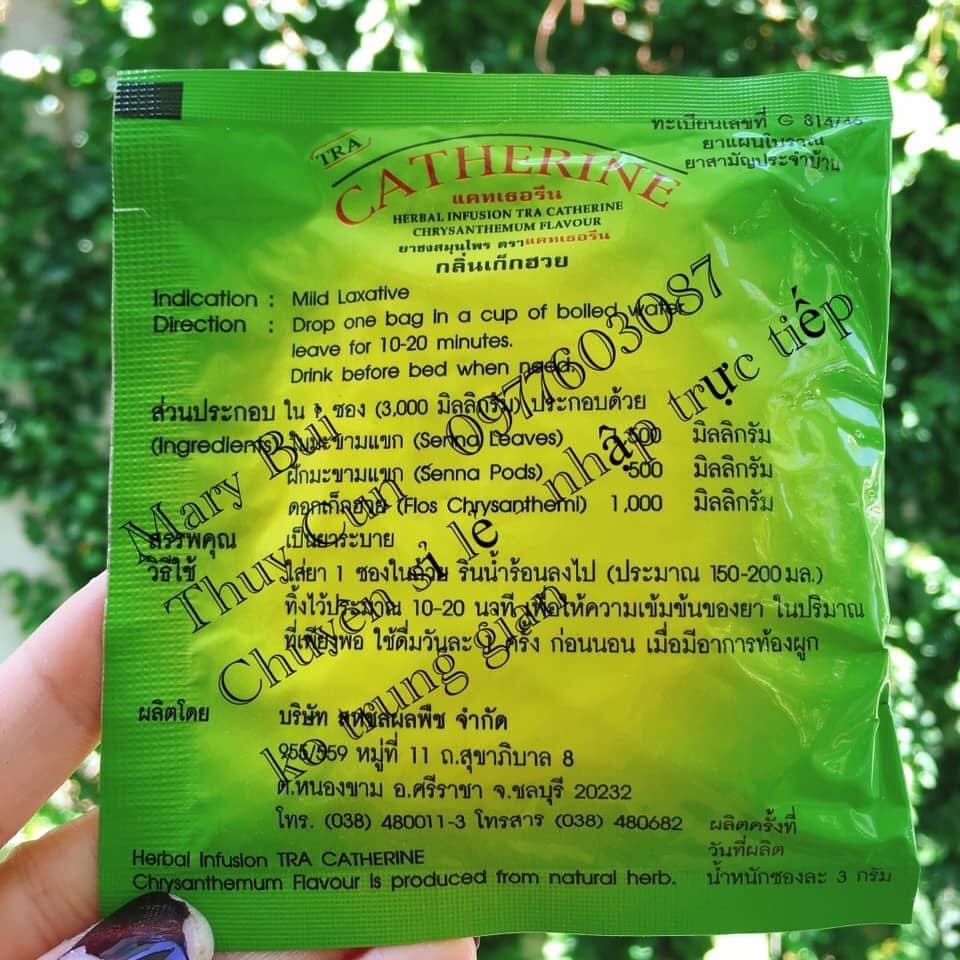 ทะเบียนเลขที่ G 814/46
ยาแผนโบราณ
ยาสามัญประจำบ้าน
TRA
CATHERINE
แคทเธอรีน
HERBAL INFUSION TRA CATHERINE
CHRYSANTHEMUM FLAVOUR
ยาชงสมุนไพร ตราแคทเธอรีน
กลิ่นเก็กฮวย
Indication : Mild Laxative
Direction : Drop one bag in a cup of boiled water
leave for 10-20 minutes.
Drink before bed when need.
ส่วนประกอบ ใน 1 ซอง (3,000 มิลลิกรัม) ประกอบด้วย
(Ingredients) ใบมะขามแขก (Senna Leaves) 1,500 มิลลิกรัม
ฝักมะขามแขก (Senna Pods) 500 มิลลิกรัม
ดอกเก็กฮวย (Flos Chrysanthemi) 1,000 มิลลิกรัม
สรรพคุณ เป็นยาระบาย
วิธีใช้ ใส่ยา 1 ซองในถ้วย รินน้ำร้อนลงไป (ประมาณ 150-200 มล.)
ทิ้งไว้ประมาณ 10-20 นาที เพื่อให้ความเข้มข้นของยา ในปริมาณ
ที่เพียงพอ ใช้ดื่มวันละ 1 ครั้ง ก่อนนอน เมื่อมีอาการท้องผูก
ผลิตโดย บริษัท สหชลผลพืช จำกัด
255/559 หมู่ที่ 11 ถ.สุขาภิบาล 8
ต.หนองขาม อ.ศรีราชา จ.ชลบุรี 20232
โทร. (038) 480011-3 โทรสาร (038) 480682
ผลิตครั้งที่
วันที่ผลิต
น้ำหนักซองละ 3 กรัม
Herbal Infusion TRA CATHERINE
Chrysanthemum Flavour is produced from natural herb.
Mary Biu
Thuy Cun 0977603087
Chuyên sỉ lẻ - nhập trực tiếp
ko trung gian